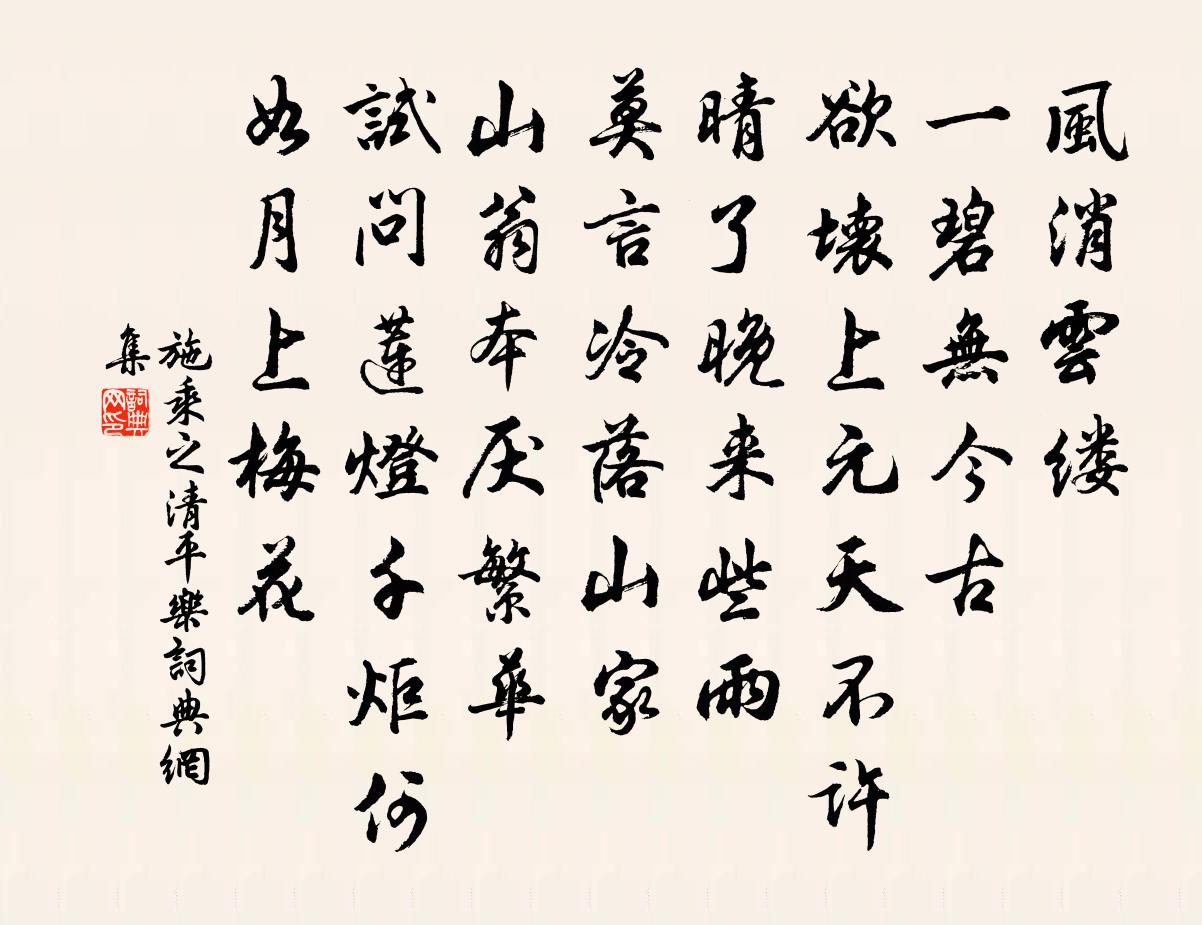 風消雲缕
一碧無今古
欲壊上元天不許
晴了晚来些雨
莫言冷落山家
山翁本厌繁華
試問蓮燈千炬何
如月上梅花
施乘之清平樂詞典網
集
詞典网印